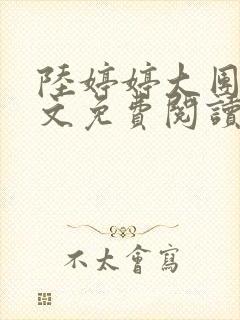 陸婷婷大團
文免費閱讀
不太會寫